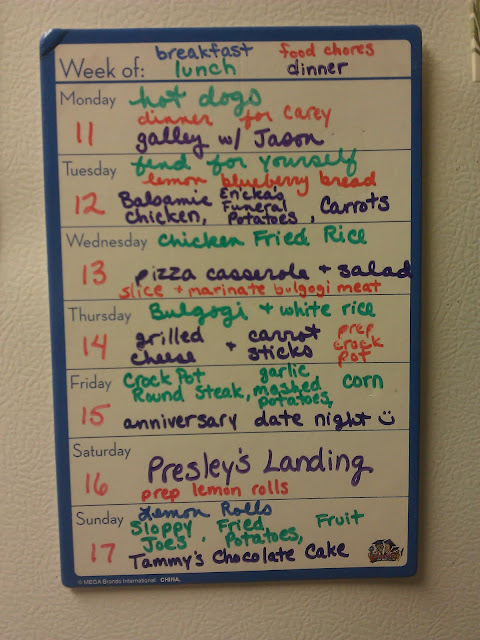 breakfast food chores
Week of: lunch dinner
Monday hot dogs
dinner for Carey
11 galley w/ Jason
Tuesday fend for yourself
lemon blueberry bread
12 Balsamic Chicken, Ericka's Funeral Potatoes, Carrots
Wednesday Chicken Fried Rice
13 pizza casserole + salad
slice + marinate bulgogi meat
Thursday Bulgogi + white rice
14 grilled cheese + carrot sticks prep crock pot
Friday Crock Pot Round Steak, garlic mashed potatoes, corn
15 anniversary date night
Saturday
16 Presley's Landing
prep lemon rolls
Sunday Lemon Rolls
Sloppy Joes, Fried Potatoes, Fruit
17 Tammy's Chocolate Cake
© MEGA Brands International. CHINA.